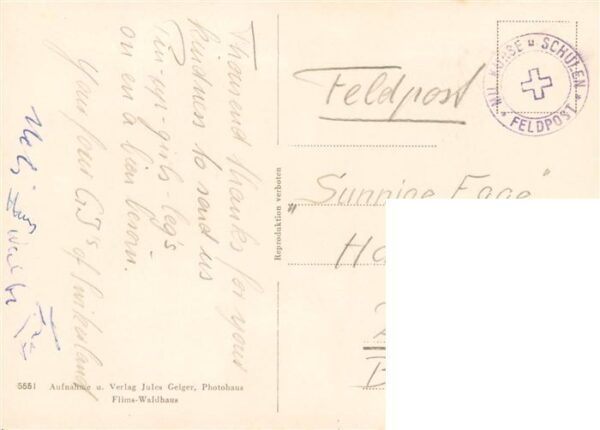 Thousend thanks for your
kindness to send us
Pin-up-girls-leg's
on en a bien besoin.
Your four G.J's of Switserland
Feldpost
MIL. KURSE u. SCHULEN
* FELDPOST *
"Sunnige Egge"
Reproduktion verboten
5551 Aufnahme u. Verlag Jules Geiger, Photohaus
Flims-Waldhaus